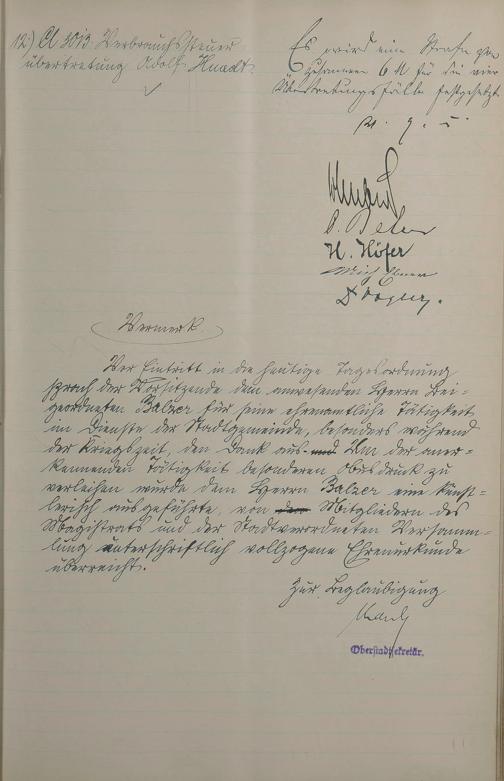 12.) A 3013. Verbrauchssteuer
übertretung Adolf Knadt.
Es wird eine Strafe von
zusammen 6 M für die vier
Übertretungsfälle festgesetzt.
v. g. u.
H. Höfer
Vermerk
Vor Eintritt in die heutige Tagesordnung
sprach der Vorsitzende dem anwesenden Herrn Bei-
geordneten Balzer für seine ehrenamtliche Tätigkeit
im Dienste der Stadtgemeinde, besonders während
der Kriegszeit, den Dank aus. und Um der aner-
kennenden Tätigkeit besonderen Ausdruck zu
verleihen wurde dem Herrn Balzer eine künst-
lerisch ausgeführte, von den Mitgliedern des
Magistrats und der Stadtverordneten Versamm-
lung unterschriftlich vollzogene Ehrenurkunde
überreicht.
Zur Beglaubigung
Oberstadtsekretär.